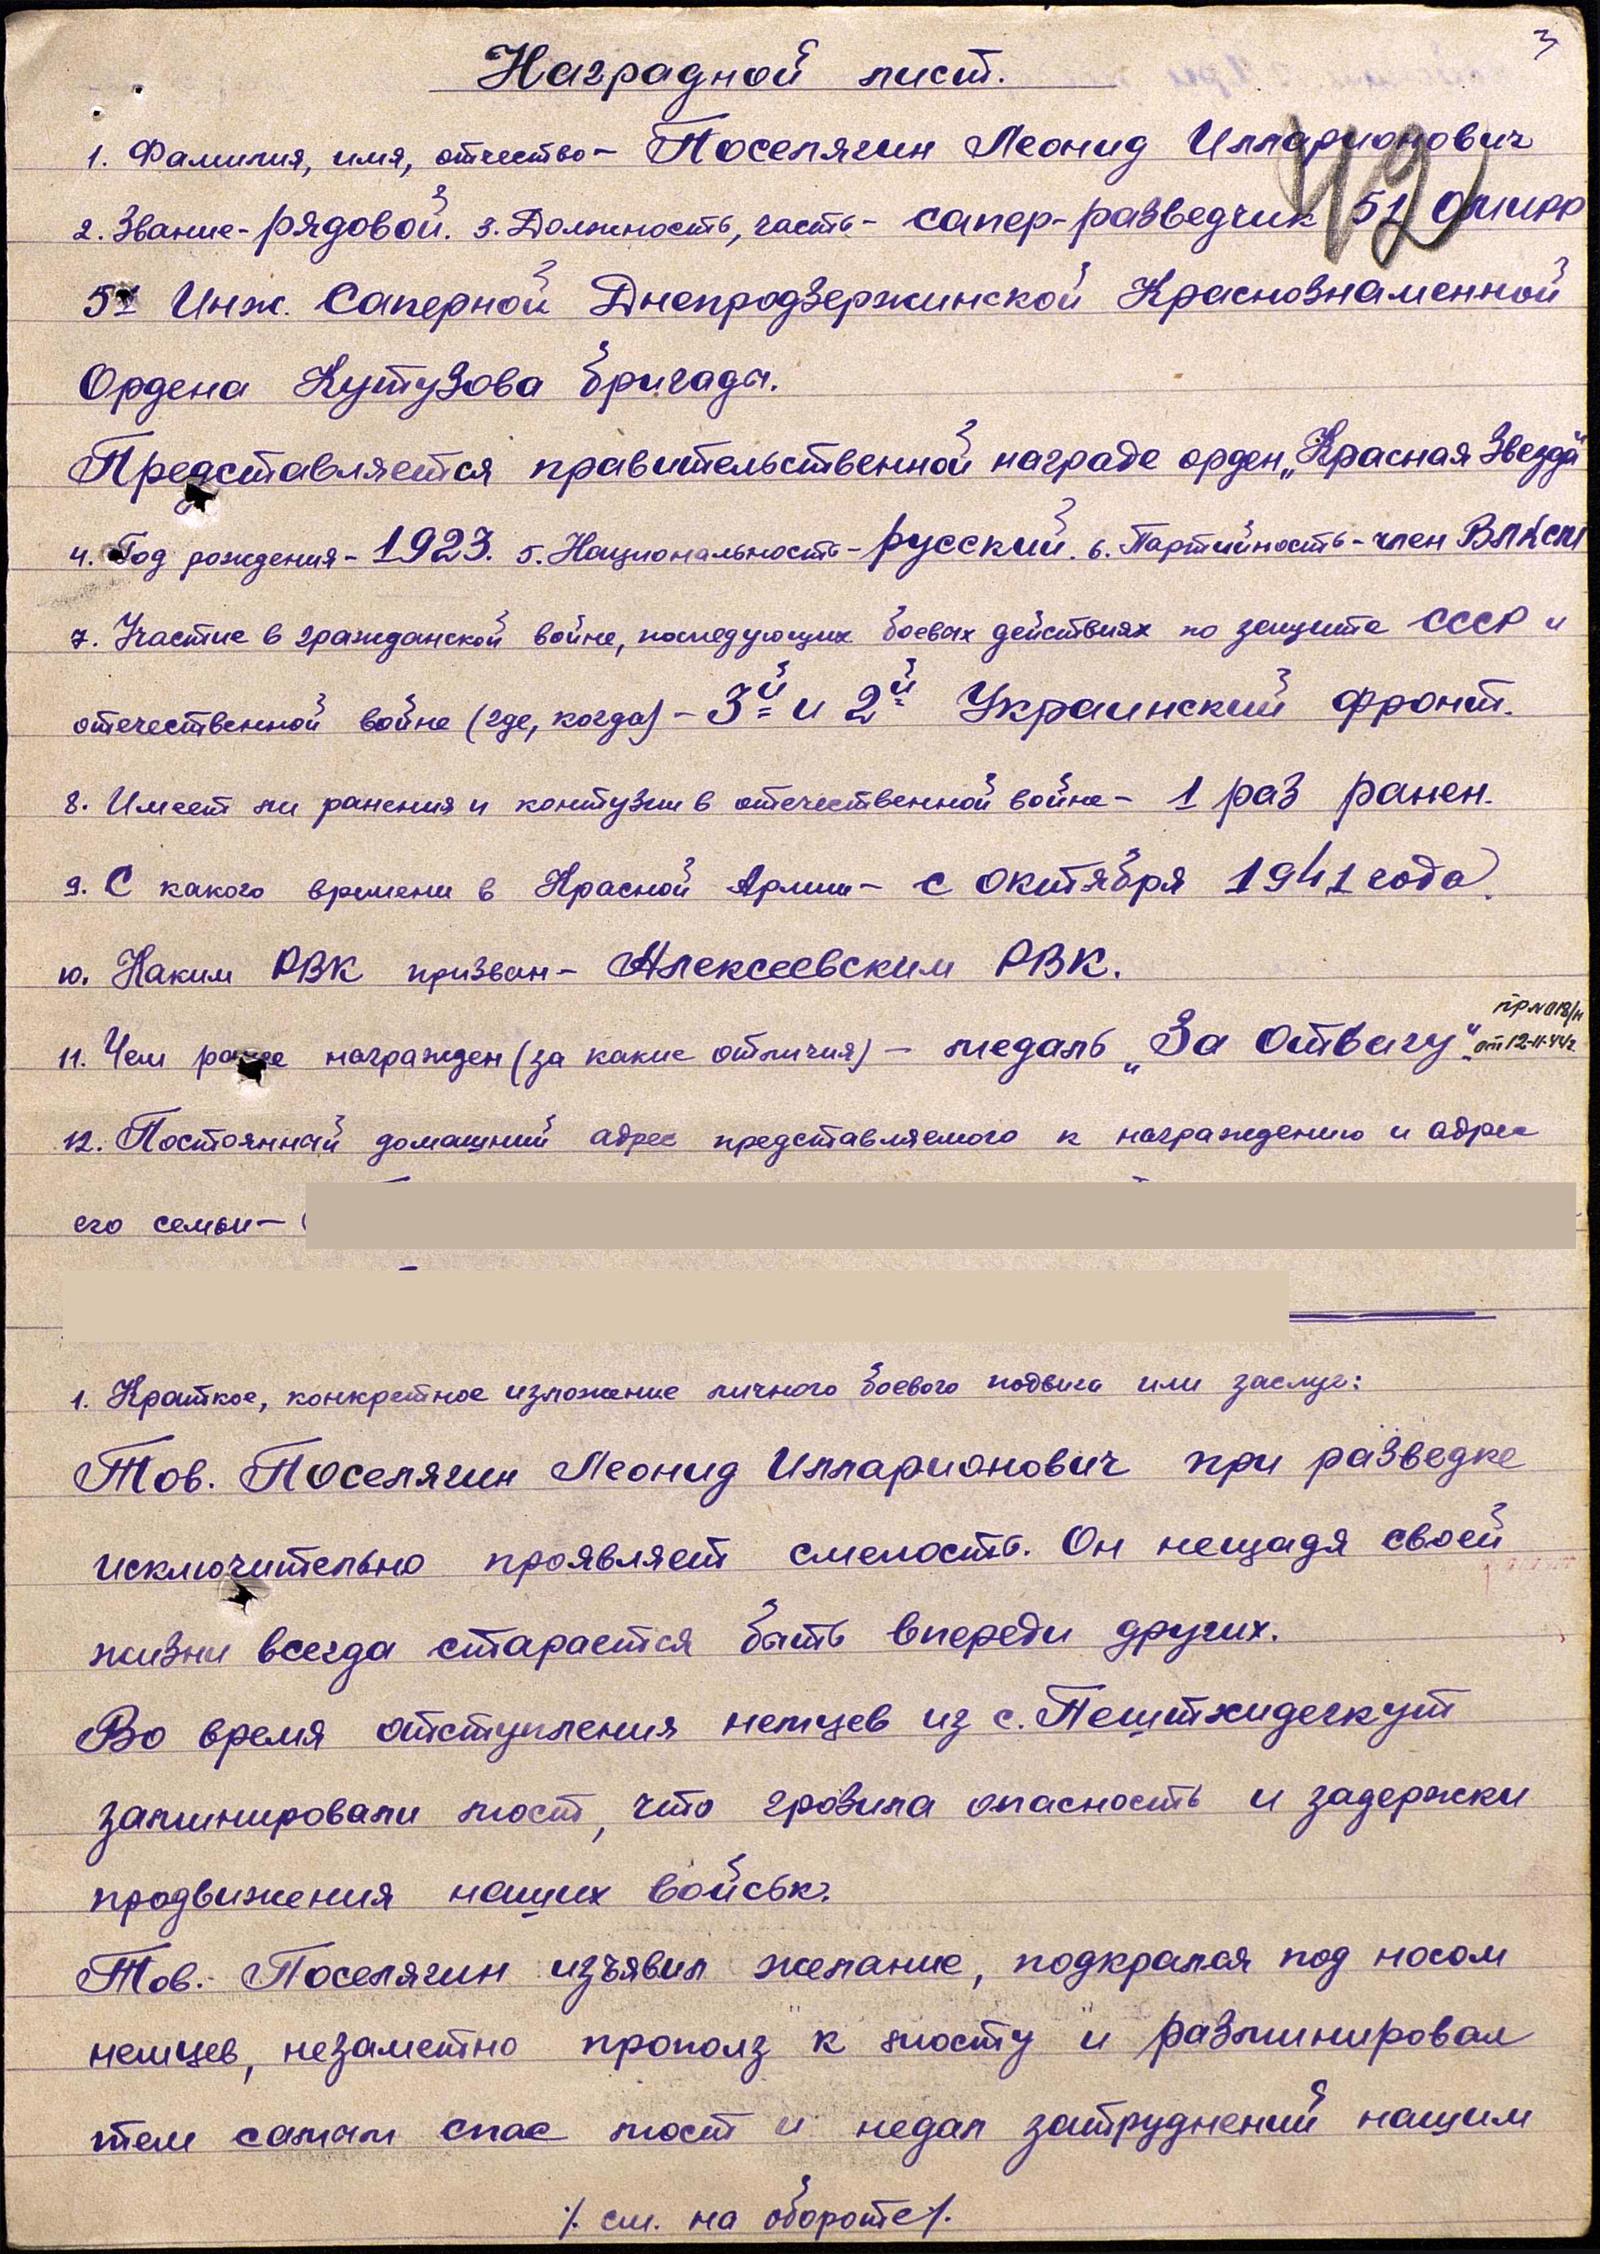 3
Наградной лист.
1. Фамилия, имя, отчество – Поселягин Леонид Илларионович
2. Звание – рядовой. 3. Должность, часть – сапер-разведчик 51
5й Инж. Саперной Днепродзержинской Краснознаменной
Ордена Кутузова бригады.
Представляется правительственной награде орден „Красная Звезда"
4. Год рождения – 1923. 5. Национальность – русский. 6. Партийность – член ВЛКСМ
7. Участие в гражданской войне, последующих боевых действиях по защите СССР и
отечественной войне (где, когда) – 3й и 2й Украинский фронт.
8. Имеет ли ранения и контузии в отечественной войне – 1 раз ранен.
9. С какого времени в Красной Армии – с октября 1941 года.
10. Каким РВК призван – Алексеевским РВК.
11. Чем ранее награжден (за какие отличия) – медаль „За Отвагу"
от 12-11-44г.
12. Постоянный домашний адрес представляемого к награждению и адрес
его семьи –
1. Краткое, конкретное изложение личного боевого подвига или заслуг:
Тов. Поселягин Леонид Илларионович при разведке
исключительно проявляет смелость. Он нещадя своей
жизни всегда старается быть впереди других.
Во время отступления немцев из с. Пештхидегкут
заминировали мост, что грозила опасность и задержки
продвижения наших войськ.
Тов. Поселягин изъявил желание, подкрался под носом
немцев, незаметно прополз к мосту и разминировал
тем самым спас мост и недал затруднений нашим
./. см. на обороте ./.